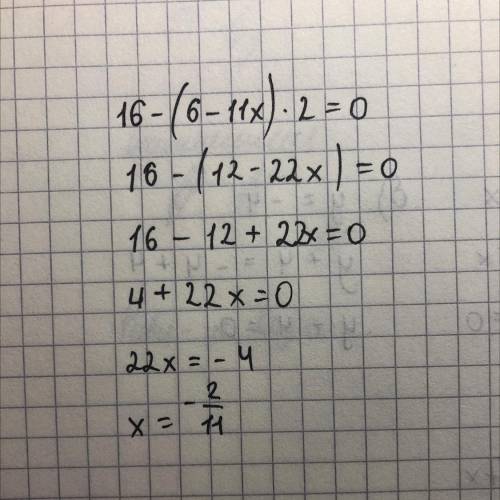 16 - (6 - 11x) · 2 = 0
16 - (12 - 22x) = 0
16 - 12 + 22x = 0
4 + 22x = 0
22x = - 4
x = - 2/11